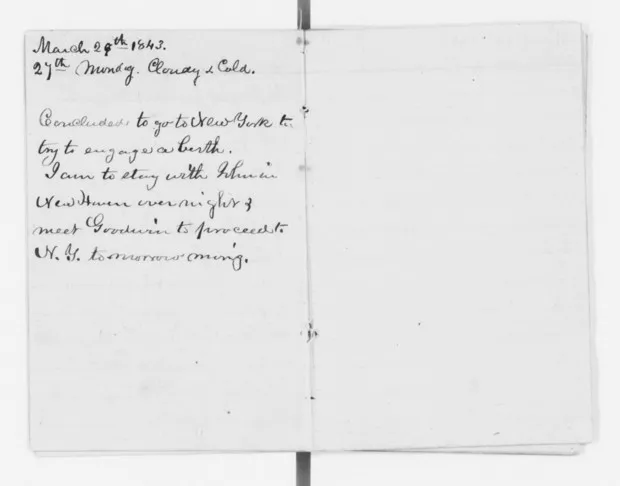 March 29th 1843.
27th Monday. Cloudy & Cold.
Concluded to go to New York to
try to engage a berth.
I am to stay with John in
New Haven over night &
meet Goodwin to proceed to
N. Y. tomorrow morn'g.